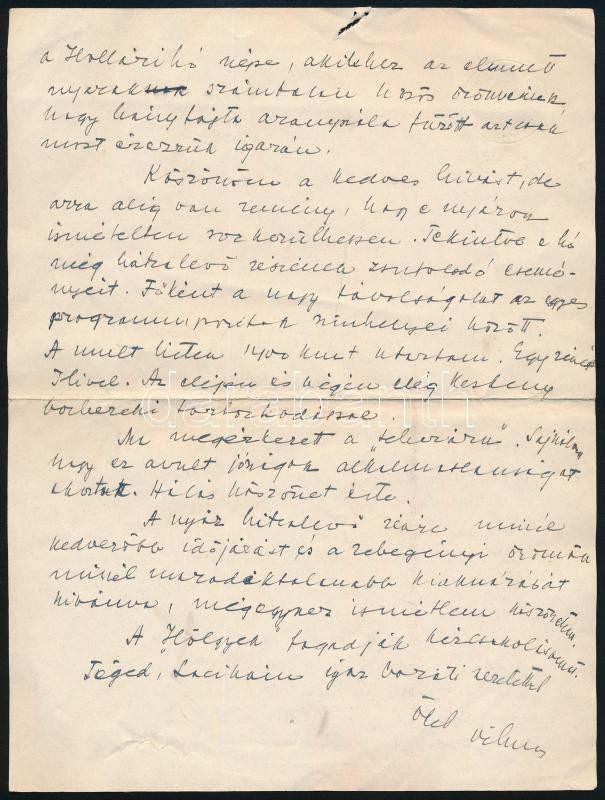 a népe, akikhez az elmult
nyarak számtalan közös örömeinek
nagy aranyszála fűzött azt csak
most érezzük igazán.
Köszönöm a kedves hívást, de
arra alig van remény, hogy e nyáron
ismételten sor kerülhessen. Tekintve e hó
még hátralevő részének zsufolodó esemé-
nyeit. Főként a nagy távolságokat az egyes
programm pontok szinhelyei között.
A mult héten 1400 kmt utaztam. Egy részét
Ilivel. Az elején és végén elég keskeny
tartozkodással.
Ma megérkezett a "teheráru". Sajnálom
hogy ez avult jószágok alkalmatlanságot
okoztak. Hálás köszönet érte.
A nyár hátralevő része minél
kedvezőbb időjárást és a zebegényi örömök
minél maradéktalanabb kiaknázását
kivánva, mégegyszer ismétlem köszönetem.
A "Hölgyek" fogadják kézcsokolásomat.
Téged, Lacikám igaz baráti szeretettel
ölel
Vilmos
darabanth